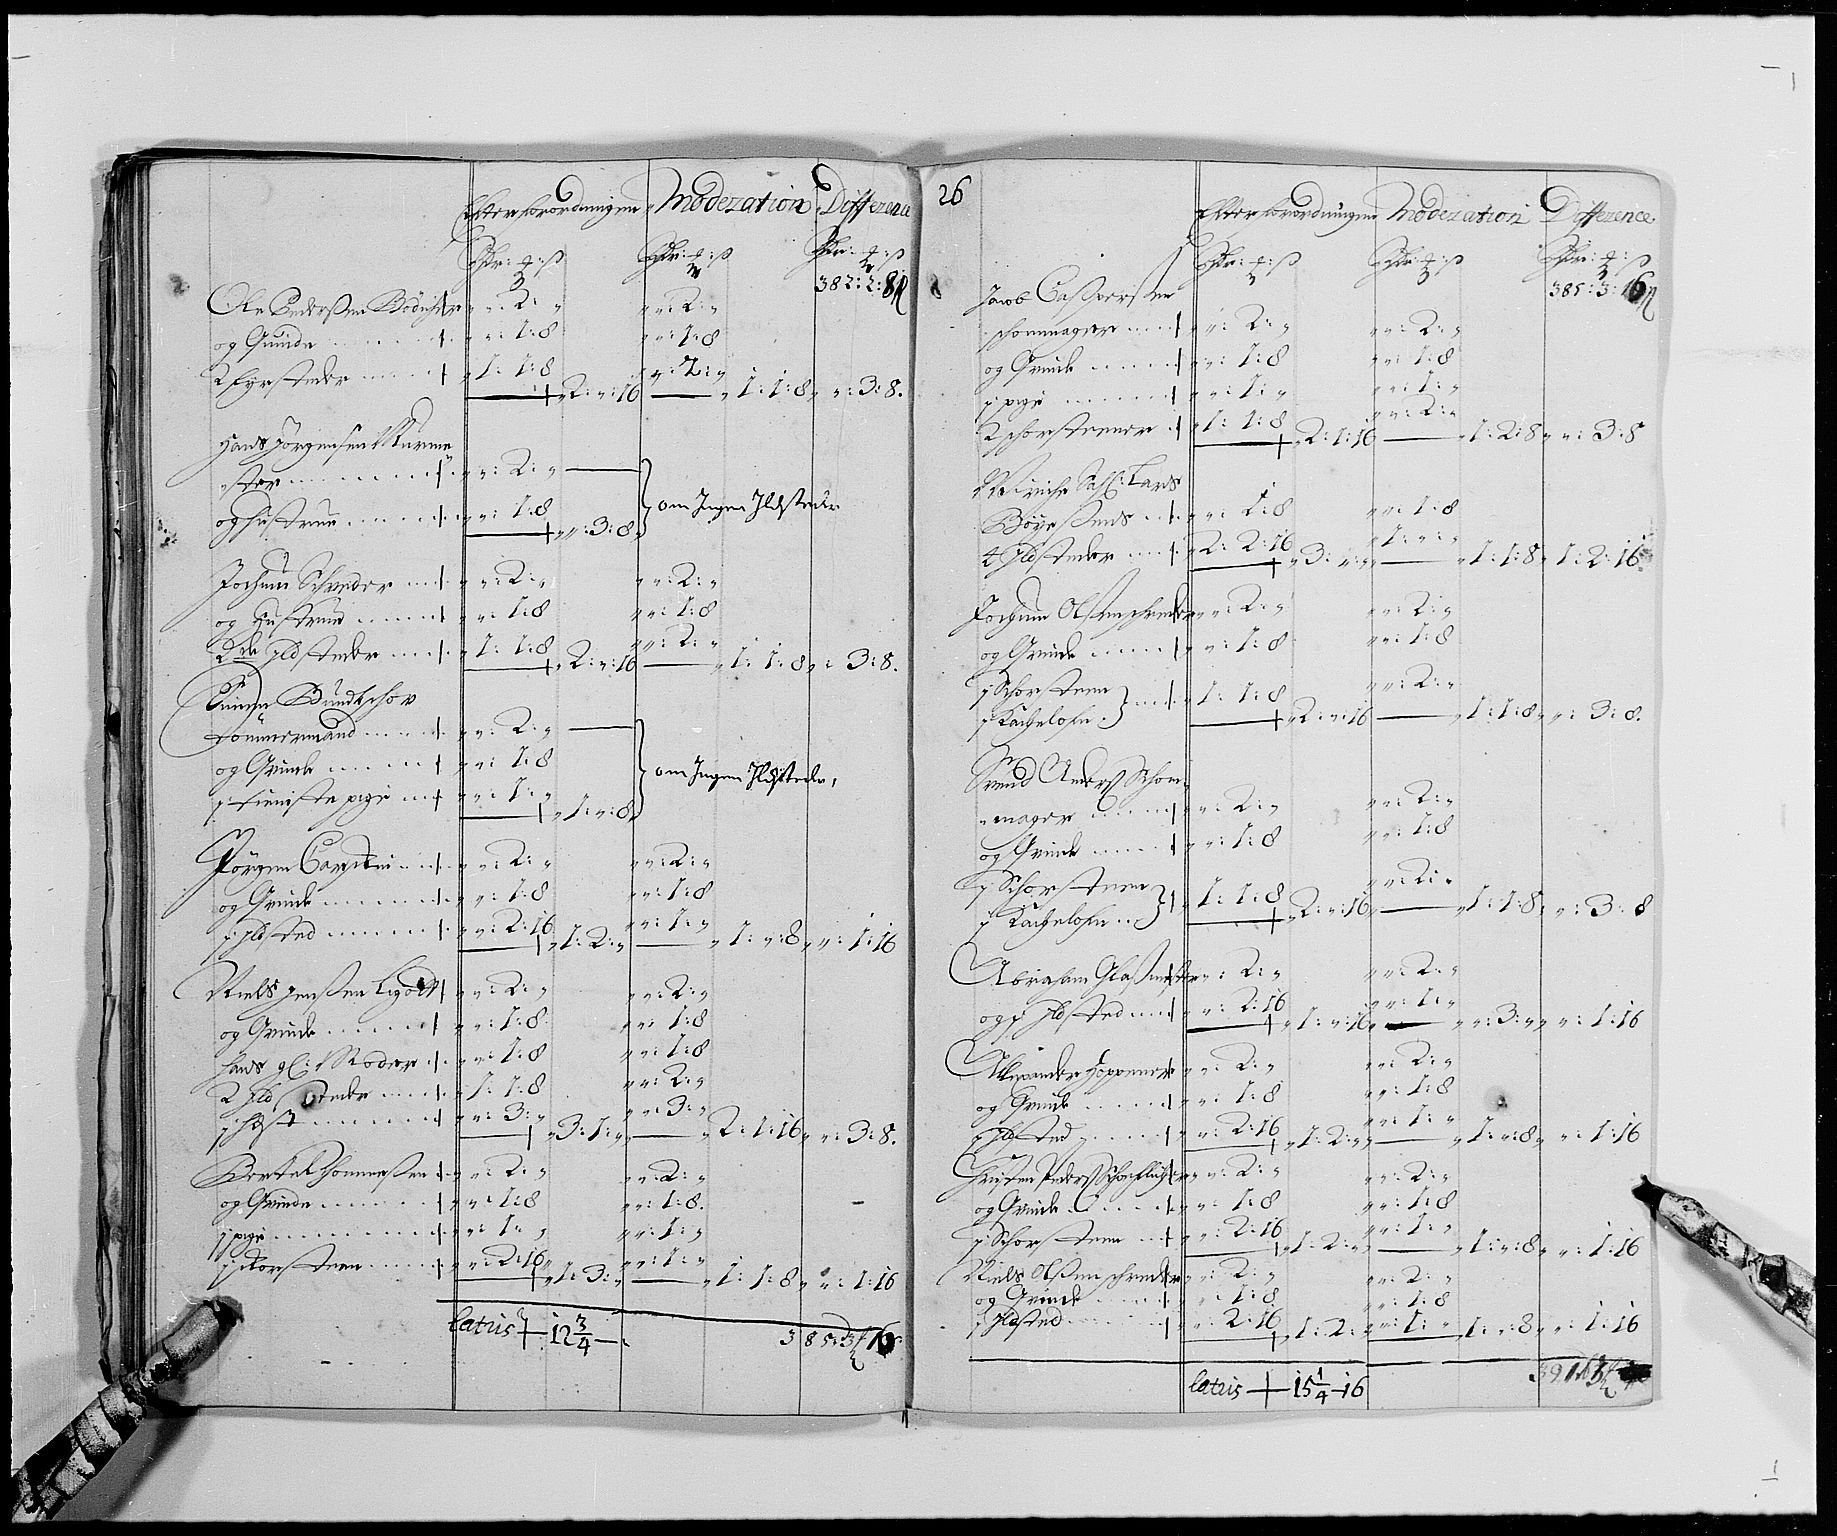 Efter forordningen Moderation Difference
Sldr: ꝗ: ß Sldr: ꝗ: ß Sldr: ꝗ: ß
382: 2: 8
Ole Pederßen Bödicher „ „: 2: „ „ „: 2: „
og Quinde „ „: 1: 8 „ „: 1: 8
2 Fyrsteder „ 1: 1: 8 „ „: 2: „
„ 2: „: 16 „ 1: 1: 8 „ „: 3: 8.
Hans Jörgensen Murme
ster „ „: 2: „
og hustrue „ „: 1: 8 om Ingen Ildsteder
„ „: 3: 8
Jochum Schreder „ „: 2: „ „ „: 2: „
og Hustrue „ „: 1: 8 „ „: 1: 8
2de Ildsteder „ 1: 1: 8 „ „: 2: „
„ 2: „: 16 „ 1: 1: 8 „ „: 3: 8.
Bundtschov
tömmermand „ „: 2: „
og Qvinde „ „: 1: 8 om Ingen Ildsteder,
j tieniste pige „ „: 1: „
„ 1: „: 8
Jörgen Carsten „ „: 2: „ „ „: 2: „
og Qvinde „ „: 1: 8 „ „: 1: 8
j Ildsted „ „: 2: 16 „ „: 1: „
„ 1: 2: „ „ 1: „: 8 „ „: 1: 16
Niels Jenßen „ „: 2: „ „ „: 2: „
og Qvinde „ „: 1: 8 „ „: 1: 8
hans gl: Moder „ „: 1: 8 „ „: 1: 8
2 Ildsteder „ 1: 1: 8 „ „: 2: „
j hest „ „: 3: „ „ „: 3: „
„ 3: 1: „ „ 2: 1: 16 „ „: 3: 8.
Bertel Thommeßen „ „: 2: „ „ „: 2: „
og Qvinde „ „: 1: 8 „ „: 1: 8.
j pige „ „: 1: „ „ „: 1: „
j skorsteen „ „: 2: 16 „ „: 1: „
„ 1: 3: „ „ 1: 1: 8 „ „: 1: 16
latus 12 3/4 385: 3: 16
26
Efter forordningen Moderation Difference
Sldr: ꝗ: ß Sldr: ꝗ: ß Sldr: ꝗ: ß
385: 3: 16
Jacob Casperßen
schomager „ „: 2: „ „ „: 2: „
og Qvinde „ „: 1: 8 „ „: 1: 8
j pige „ „: 1: „ „ „: 1: „
2 schorsteener „ 1: 1: 8 „ „: 2: „
„ 2: 1: 16 „ 1: 2: 8 „ „: 3: 8
Sahl: Lars
Böyeßens „ „: 1: 8 „ „: 1: 8
4 Ildsteder „ 2: 2: 16 „ 1: „: „
„ 3: „: „ „ 1: 1: 8 „ 1: 2: 16
Jochum Olßen schreder „ „: 2: „ „ „: 2: „
og Qvinde „ „: 1: 8 „ „: 1: 8
j Schorsteen
j Kachelofn „ 1: 1: 8 „ „: 2: „
„ 2: „: 16 „ 1: 1: 8 „ „: 3: 8.
Svend Anderß Schoe
mager „ „: 2: „ „ „: 2: „
og Qvinde „ „: 1: 8 „ „: 1: 8
j Schorsteen
j Kachelofn „ 1: 1: 8 „ „: 2: „
„ 2: „: 16 „ 1: 1: 8 „ „: 3: 8
Abraham Glaßmester „ „: 2: „ „ „: 2: „
og j Ildsted „ „: 2: 16 „ „: 1: „
„ 1: „: 16 „ „: 3: „ „ „: 1: 16
Allexander Höppener „ „: 2: „ „ „: 2: „
og Qvinde „ „: 1: 8 „ „: 1: 8
j Ildsted „ „: 2: 16 „ „: 1: „
„ 1: 2: „ „ 1: „: 8 „ „: 1: 16
Christen Pederß „ „: 2: „ „ „: 2: „
og Qvinde „ „: 1: 8 „ „: 1: 8
j Schorsteen „ „: 2: 16 „ „: 1: „
„ 1: 2: „ „ 1: „: 8 „ „: 1: 16
Niels Olßen schreder „ „: 2: „ „ „: 2: „
og Qvinde „ „: 1: 8 „ „: 1: 8
j Ildsted „ „: 2: 16 „ „: 1: „
„ 1: 2: „ „ 1: „: 8 „ „: 1: 16
latus 15 1/4 16